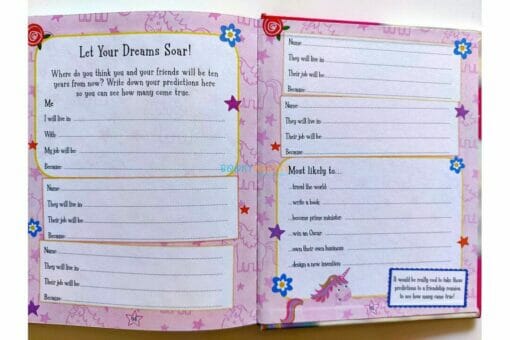 Let Your Dreams Soar!
Where do you think you and your friends will be ten
years from now? Write down your predictions here
so you can see how many come true.
Me
I will live in
With:
My job will be:
Because:
Name:
They will live in:
Their job will be:
Because:
Name:
They will live in:
Their job will be:
Because:
Name:
They will live in:
Their job will be:
Because:
Name:
They will live in:
Their job will be:
Because:
Most likely to...
...travel the world:
...write a book:
...become prime minister:
...win an Oscar:
...own their own business:
...design a new invention:
It would be really cool to take these
predictions to a friendship reunion
to see how many came true!